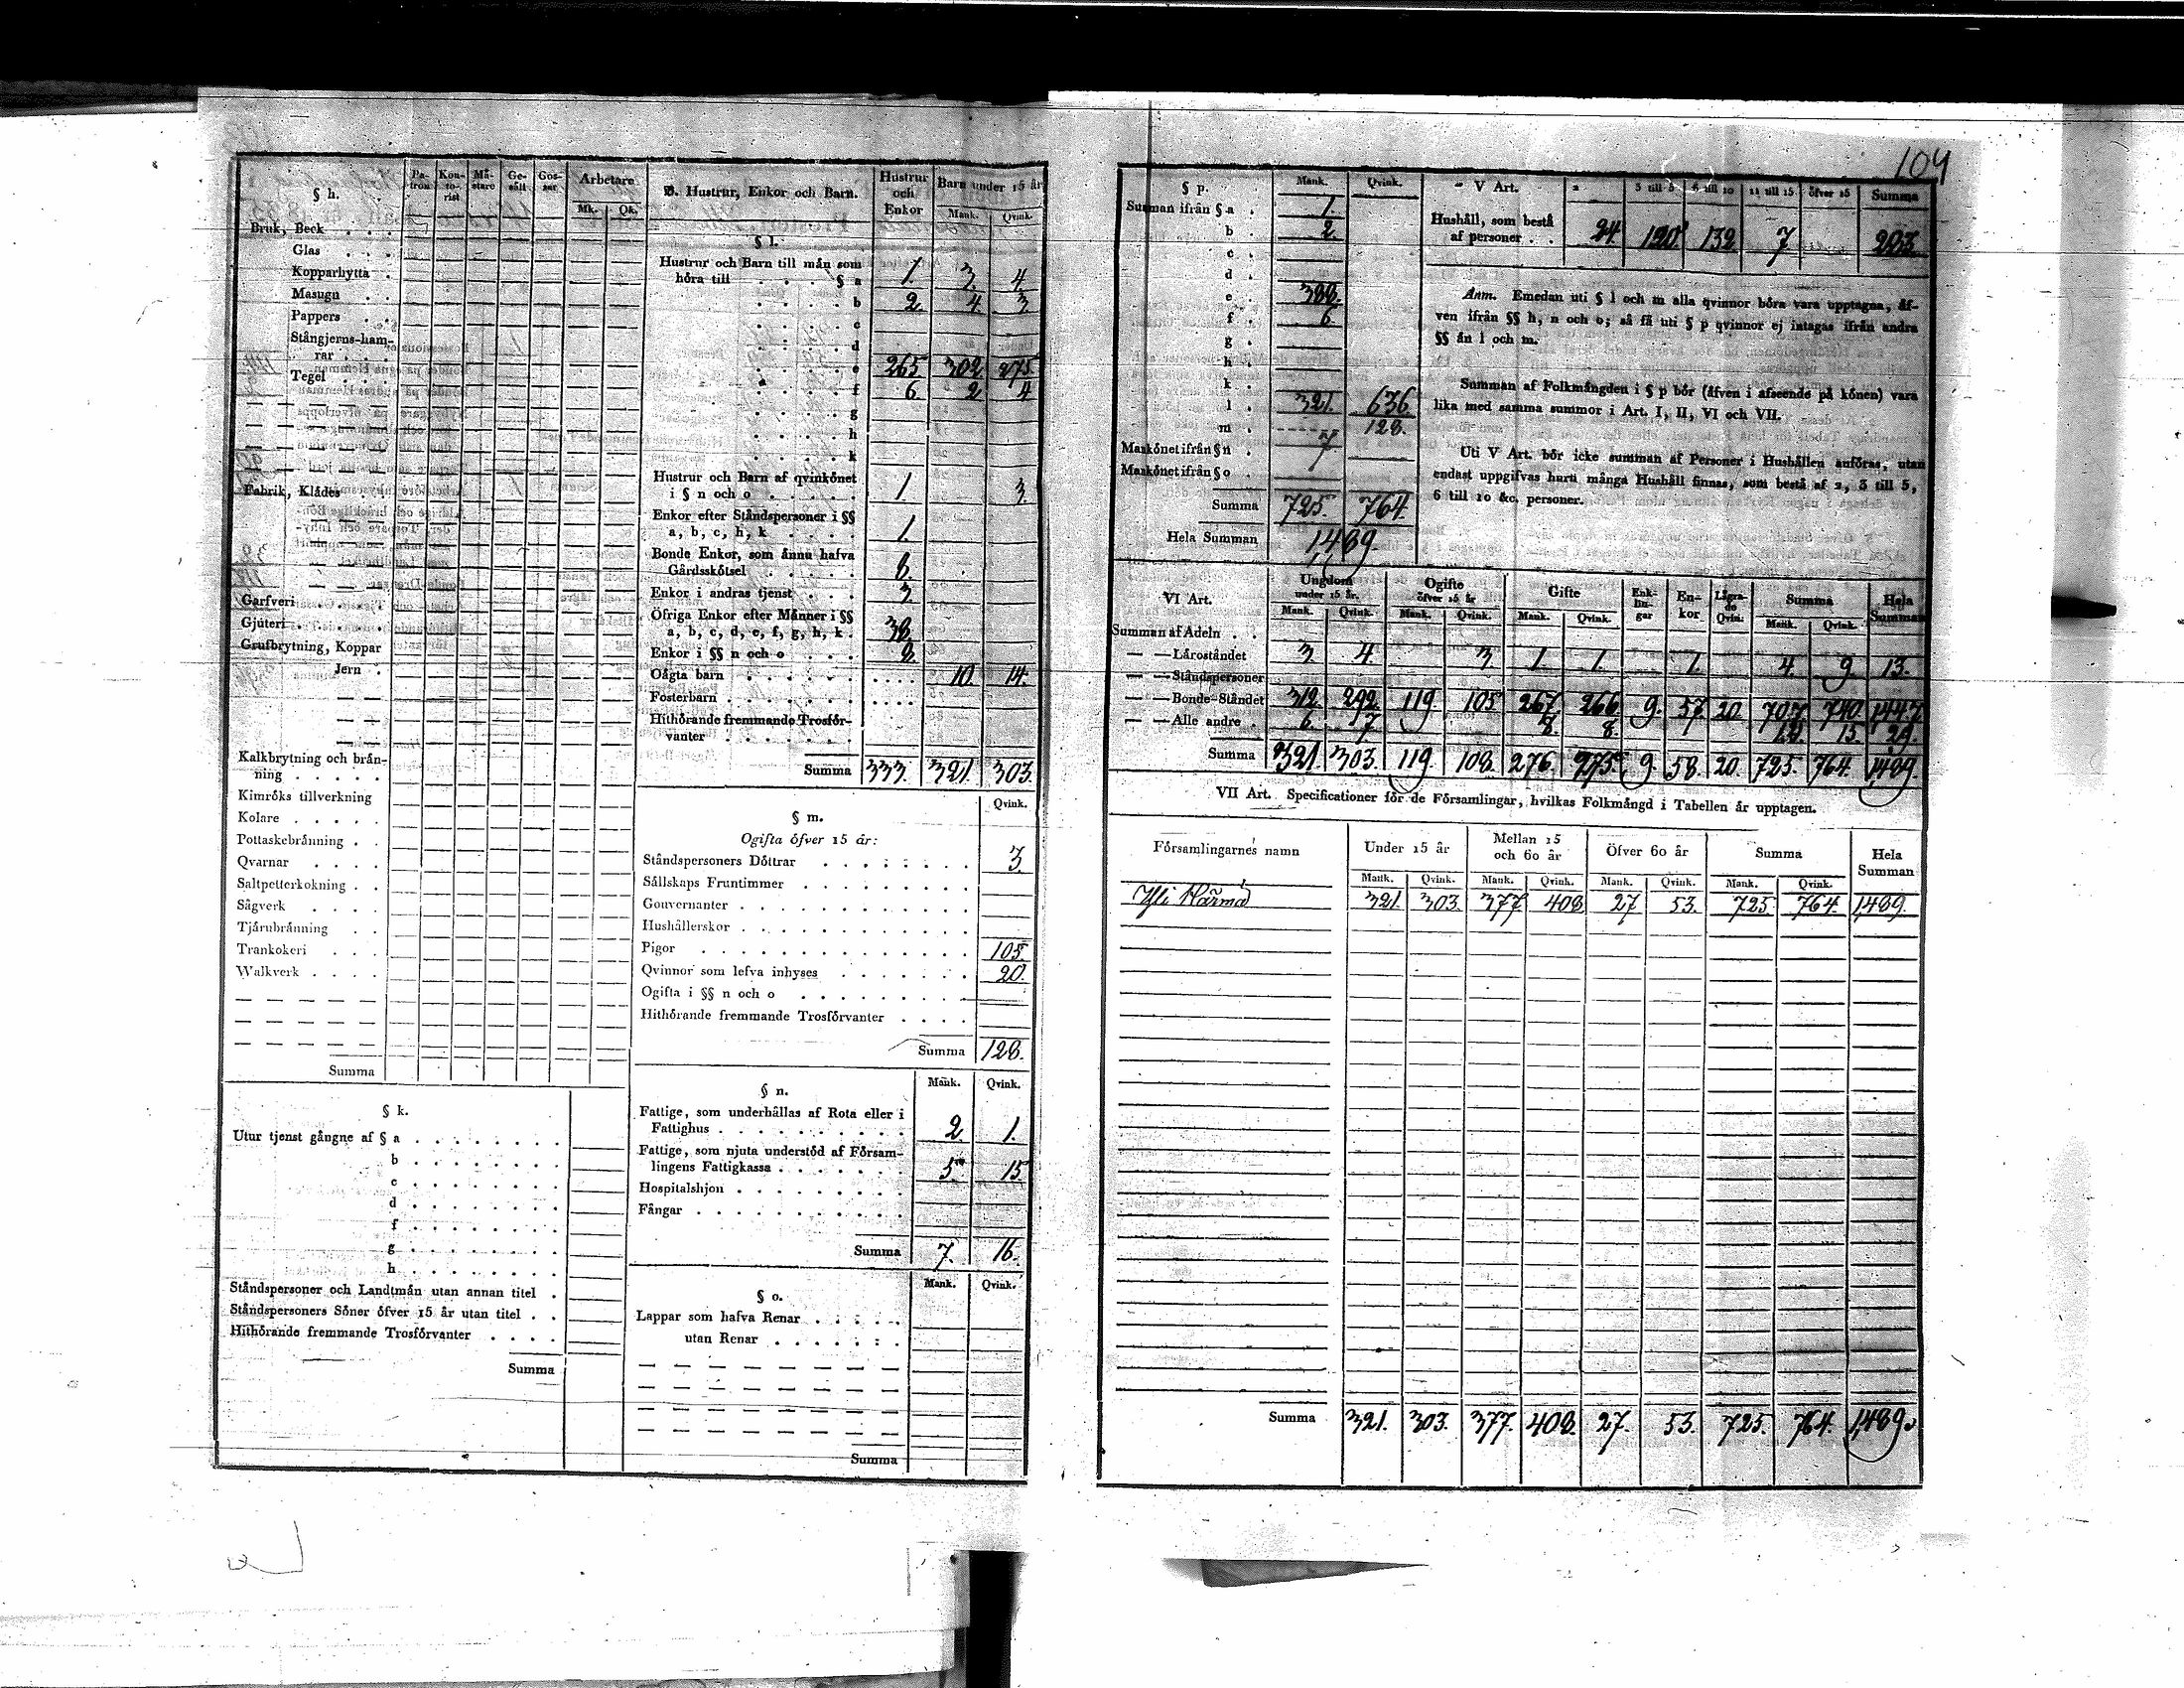 104
§ h.
Patron Kontorist Mästare Gesäll Gossar Arbetare
Mk. Qk.
Bruk, Beck . . .
Glas . . .
Kopparhytta .
Masugn . .
Pappers . .
Stångjerns-ham-
rar . . .
Tegel . . .
Fabrik, Klädes
Garfveri . . . .
Gjuteri . . . .
Grufbrytning, Koppar
Jern .
Kalkbrytning och brän-
ning . . . . .
Kimröks tillverkning
Kolare . . . . .
Pottaskebränning . .
Qvarnar . . . .
Saltpetterkokning . .
Sågverk . . . .
Tjärubränning . .
Trankokeri . . .
Walkverk . . . .
Summa
§ k.
Utur tjenst gångne af § a . . . . . . .
b . . . . . . .
c . . . . . . .
d . . . . . . .
f . . . . . . .
g . . . . . . .
h . . . . . . .
Ståndspersoner och Landtmän utan annan titel .
Ståndspersoners Söner öfver 15 år utan titel . .
Hithörande fremmande Trosförvanter . . . .
Summa
D. Hustrur, Enkor och Barn. Hustrur och Enkor Barn under 15 år
Mank. Qvink.
§ l.
Hustrur och Barn till män som
höra till . . . . § a 1. 3. 4.
b 2. 4. 3.
c
d
e 265 302 275
f 6 2 4
g
h
k
Hustrur och Barn af qvinkönet
i § n och o . . . . . 1. 3.
Enkor efter Ståndspersoner i §§
a, b, c, h, k . . . . 1.
Bonde Enkor, som ännu hafva
Gårdsskötsel . . . . . 8.
Enkor i andras tjenst . . . 3.
Öfriga Enkor efter Männer i §§
a, b, c, d, e, f, g, h, k . 38.
Enkor i §§ n och o . . . 8.
Oägta barn . . . . . . . . . . 10. 14.
Fosterbarn . . . . . . . . . . .
Hithörande fremmande Trosför-
vanter . . . . . . .
Summa 333. 321. 303.
Qvink.
§ m.
Ogifta öfver 15 år:
Ståndspersoners Döttrar . . . . . . . . 3.
Sällskaps Fruntimmer . . . . . . . . .
Gouvernanter . . . . . . . . . . . .
Hushållerskor . . . . . . . . . . . .
Pigor . . . . . . . . . . . . . . 105.
Qvinnor som lefva inhyses . . . . . . . 20.
Ogifta i §§ n och o . . . . . . . . .
Hithörande fremmande Trosförvanter . . . .
Summa 128.
§ n. Mank. Qvink.
Fattige, som underhållas af Rota eller i
Fattighus . . . . . . . . . . 2. 1.
Fattige, som njuta understöd af Försam-
lingens Fattigkassa . . . . . . . 5 15.
Hospitalshjon . . . . . . . . .
Fångar . . . . . . . . . . .
Summa 7. 16.
§ o. Mank. Qvink.
Lappar som hafva Renar . . . . .
utan Renar . . . . . . .
Summa
§ p. Mank. Qvink.
Summan ifrån § a . 1.
b . 2.
c .
d .
e . 388.
f . 6.
g .
h .
k .
l . 321. 636
m . 128.
Mankönet ifrån § n . 7
Mankönet ifrån § o .
Summa 725. 764.
Hela Summan 1,489.
V Art. 2 3 till 5 6 till 10 11 till 15 öfver 15 Summa
Hushåll, som bestå
af personer . . 24. 120. 132 7 283.
Anm. Emedan uti § l och m alla qvinnor böra vara upptagna, äf-
ven ifrån §§ h, n och o; så få uti § p qvinnor ej intagas ifrån andra
§§ än l och m.
Summan af Folkmängden i § p bör (äfven i afseende på könen) vara
lika med samma summor i Art. I, II, VI och VII.
Uti V Art. bör icke summan af Personer i Hushållen anföras, utan
endast uppgifvas huru många Hushåll finnas, som bestå af 2, 3 till 5,
6 till 10 &c. personer.
VI Art. Ungdom under 15 år. Ogifte öfver 15 år Gifte Enklingar Enkor Lägrade Qvin. Summa Hela Summan
Mank. Qvink. Mank. Qvink. Mank. Qvink. Mank. Qvink.
Summan af Adeln . .
— — Läroståndet 3. 4. 3 1. 1. 1. 4. 9. 13.
— — Ståndspersoner
— — Bonde-Ståndet 312. 292. 119. 105 267 266 9. 57. 20 707 740 1,447
— — Alle andre . 6. 7 8. 8. 15. 29.
Summa 321. 303. 119. 108. 276. 275 9 58. 20. 725. 764. 1,489.
VII Art. Specificationer för de Församlingar, hvilkas Folkmängd i Tabellen är upptagen.
Församlingarnes namn Under 15 år Mellan 15 och 60 år Öfver 60 år Summa Hela Summan
Mank. Qvink. Mank. Qvink. Mank. Qvink. Mank. Qvink.
Yli Kärmä 321. 303. 377 408 27 53. 725 764. 1,489.
Summa 321. 303. 377. 408. 27. 53. 725. 764. 1,489.